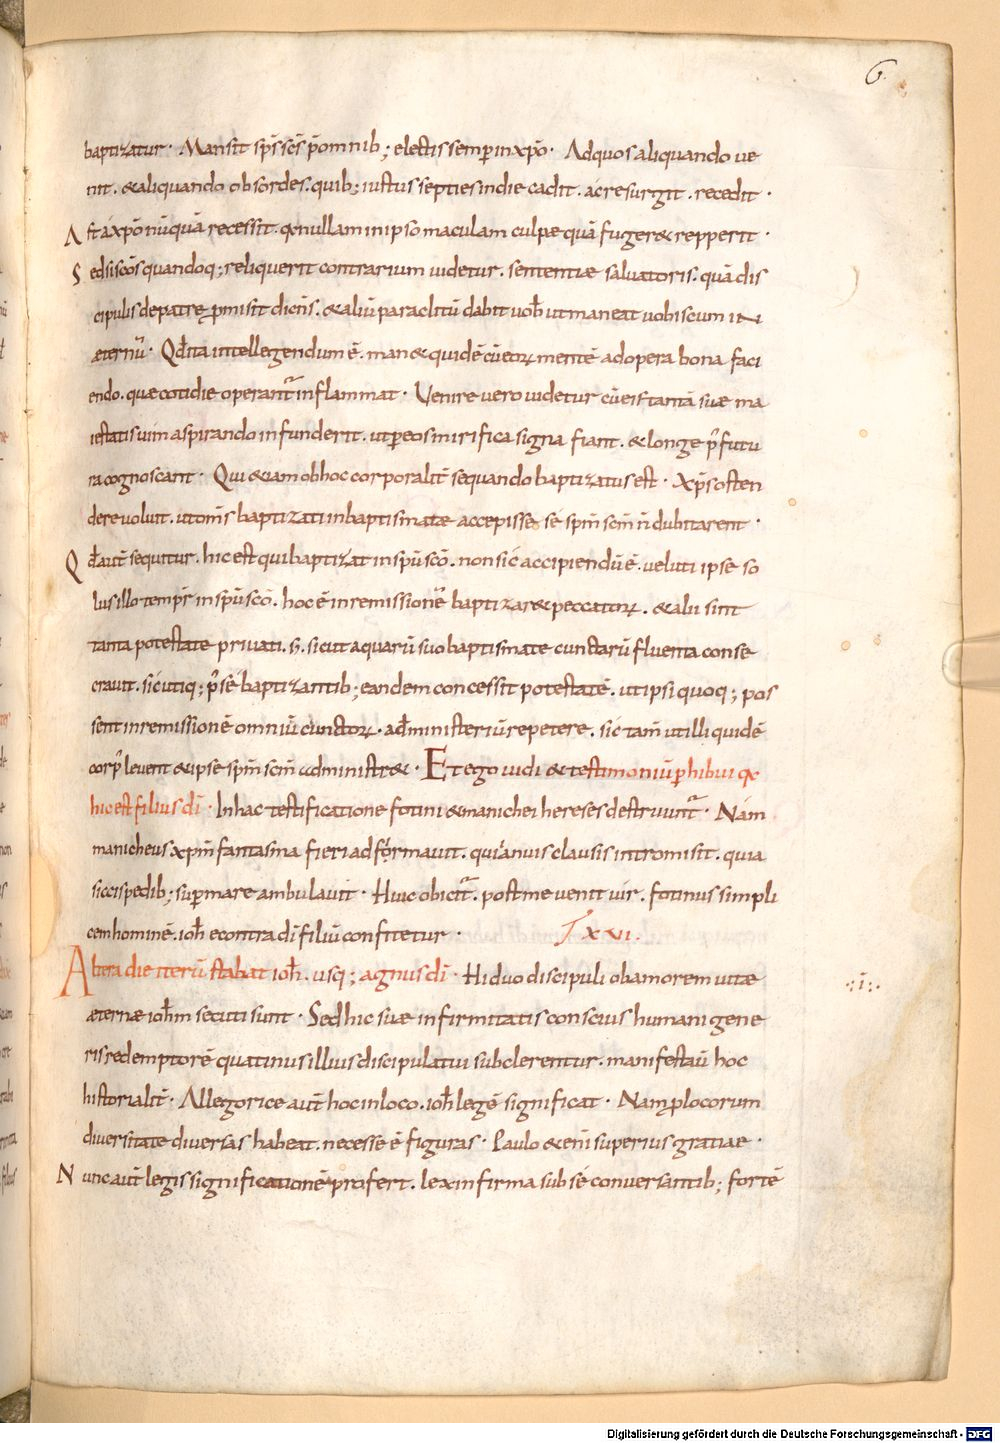 6.
baptizatur · Mansit sp̄s sc̄s p̄ omnib; electis semper in xp̄o · Ad quos aliquando ve
nit . & aliquando ob sordes . quib; iustus septies in die cadit . ac resurgit . recedit ·
Ast a xp̄o nūquā recessit . qꝛ nullam in ipso maculam culpae quā fuger& repperit ·
Sed si sc̄os quandoq; reliquerit contrarium uidetur . sententiae saluatoris . quā dis
cipulis de patre ꝓmisit dicēs . & aliū paraclitū dabit uob̄ ut maneat uobiscum in
aeternū · Qd̄ ita intellegendum ē . man& quidē cū eoꝝ mentē ad opera bona faci
endo . quae cotidie operant᷑ inflammat · Venire uero uidetur cū eis tantā suae ma
iestatis uim aspirando infunderit . ut ꝑ eos mirifica signa fiant . & longe p̄ futu
ra cognoscant · Qui &iam ob hoc corporalit̄ sequando baptizatus est · Xp̄s osten
dere uoluit . ut om̄s baptizati in baptismatae accepisse se sp̄m sc̄m n̄ dubitarent ·
Qd̄ aut̄ sequitur . hic est qui baptizat in sp̄u sc̄o . non sic accipiendū ē . veluti ipse so
lus illo tempr̄ in sp̄u sc̄o . hoc ē in remissionē baptizar& peccatoꝝ . & alii sint
tanta potestate priuati . s̄ . sicut aquarū suo baptismate cunctarū fluenta conse
crauit . sic utiq; p̄ se baptizantib; eandem concessit potestatē . ut ipsi quoq; pos
sent in remissionē omniū cunctoꝝ . ad ministeriū repetere . sic tam̄ ut illi quidē
corpr̄ leuent & ipse sp̄m sc̄m administr& · Et ego uidi & testimoniū ꝑhibui qꝛ
hic est filius dī · In hac testificatione fotini & manichei hereses destruunt᷑ · Nam
manicheus xp̄m fantasma fieri adformauit . qui ianuis clausis intromisit . quia
siccis pedib; super mare ambulauit · Huic obicit᷑ . post me uenit uir . fotinus simpli
cem hominē . ioh̄ econtra dī filiū confitetur ·
T xvi .
Altera die iterū stabat ioh̄ . usq; agnus dī · Hi duo discipuli ob amorem uitae
aeternae ioh̄m secuti sunt · Sed hic suae infirmitatis conscius humani gene
ris redemptorē quatinus illius discipulatui subderentur . manifestau̅ hoc
historialit̄ · Allegorice aut̄ hoc in loco . ioh̄ legē significat · Nam ꝓ locorum
diuersitate diuersas habeat . necesse ē figuras · Paulo &eni superius gratiae ·
Nunc aut̄ legis significationē profert . lex infirma sub se conuersantib; fortē
·:i:·
Digitalisierung gefördert durch die Deutsche Forschungsgemeinschaft - DFG